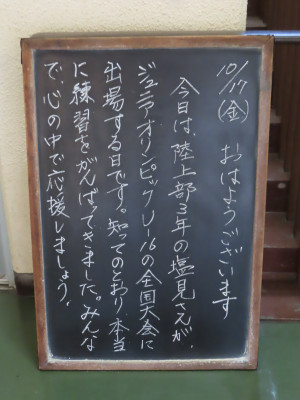 10/17(金) おはようございます
今日は、陸上部3年の塩見さんが、
ジュニアオリンピックU-16の全国大会に
出場する日です。知ってのとおり、本当
に練習をがんばってきました。みんな
で、心の中で応援しましょう。